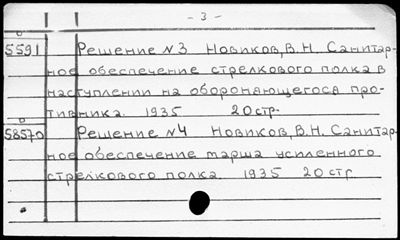 - 3 -
5591 Решение №3 Новиков, В.Н. Санитар-
ное обеспечение стрелкового полка в
наступлении на обороняющегося про-
тивника. 1935 20 стр.
58570 Решение №4 Новиков, В.Н. Санитар-
ное обеспечение марша усиленного
стрелкового полка. 1935 20 стр